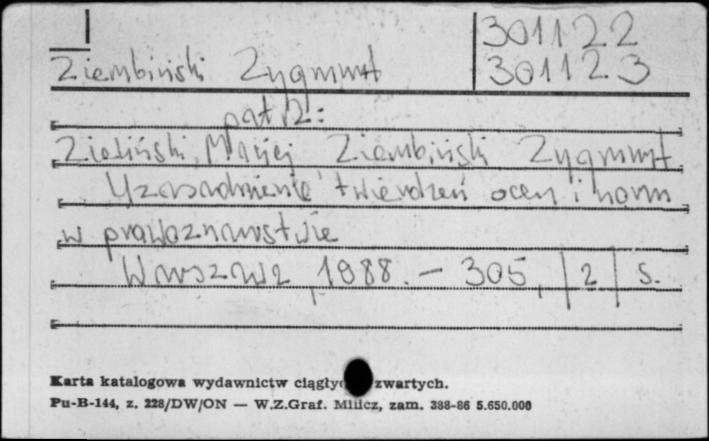 301122
Ziembiński Zygmunt 301123
patrz:
Zieliński, Maciej Ziembiński Zygmunt
Uzasadnienie twierdzeń ocen i norm
w prawoznawstwie
Warszawa, 1988. – 305, |2| s.
Karta katalogowa wydawnictw ciągły zwartych.
Pu-B-144, z. 228/DW/ON — W.Z.Graf. Milicz, zam. 388-86 5.650.000